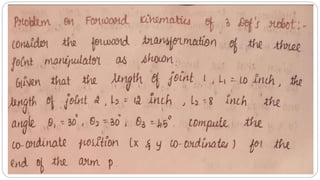 Problem on Forward kinematics of 3 Dof's robot:-
consider the forward transformation of the three
joint manipulator as shown.
Given that the length of joint 1, L1 = 10 inch, the
length of joint 2, L2 = 12 inch, L3 = 8 inch the
angle θ1 = 30°, θ2 = 30°, θ3 = 45°. compute the
co-ordinate position (x & y co-ordinates) for the
end of the arm p.